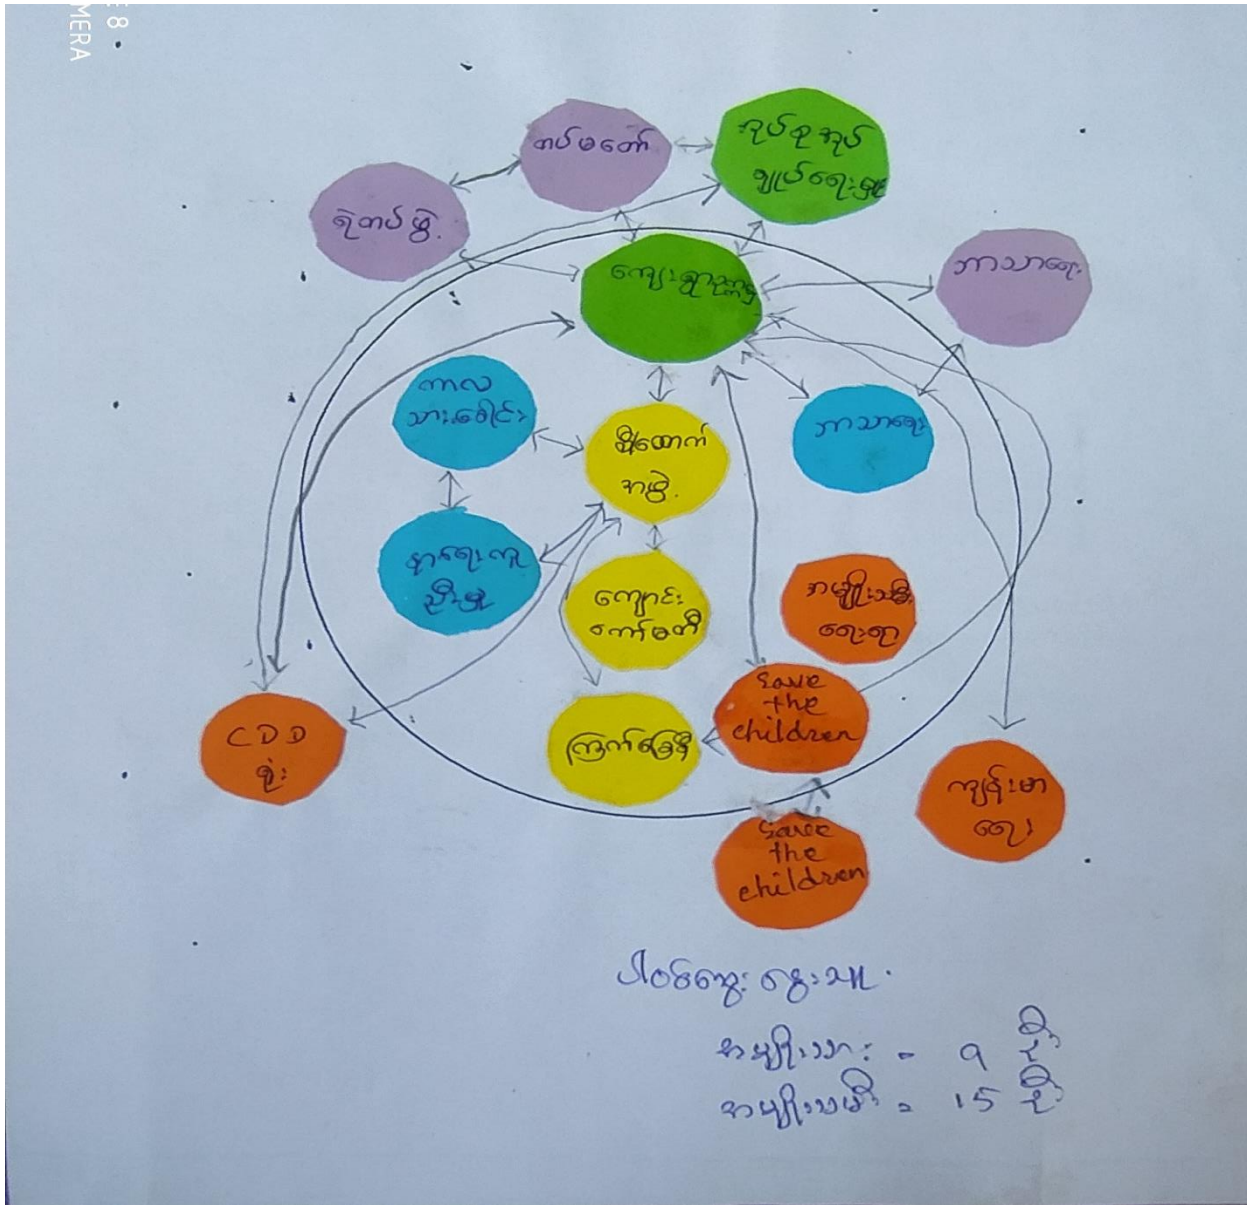 E 8
MERA
တပ်မတော်
အုပ်စုအုပ်
ချုပ်ရေးမှူး
ရဲတပ်ဖွဲ့
ကျေးရွာဥက္ကဋ္ဌ
ဘာသာရေး
ကာလ
သားခေါင်း
စီထောက်
အဖွဲ့
ဘာသာရေး
နာရေးကူ
ညီးမှု
ကျောင်း
ကော်မတီ
အမျိုးသမီး
ရေးရာ
Save
the
children
CDD
ရုံး
ကြက်ခြေနီ
ကျန်းမာ
ရေး
Save
the
children
ပါဝင်ဆွေးနွေးသူ
အမျိုးသား = ၅ ဦး
အမျိုးသမီး = ၁၅ ဦး